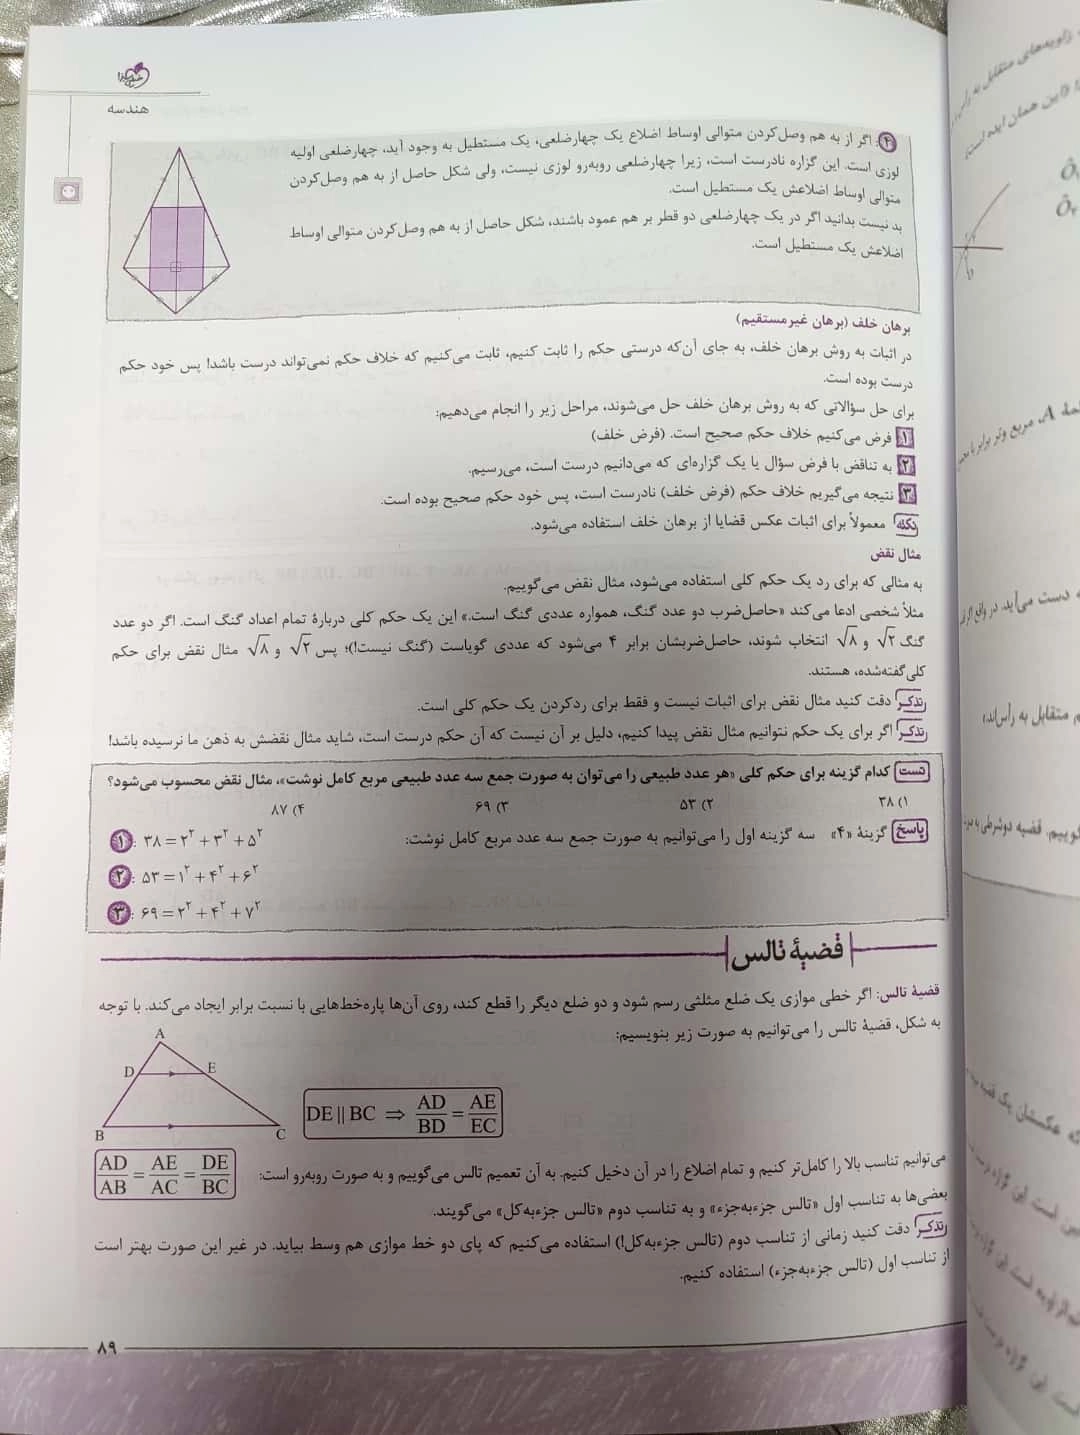 هندسه
۴: اگر از به هم وصل‌کردن متوالی اوساط اضلاع یک چهارضلعی، یک مستطیل به وجود آید، چهارضلعی اولیه
لوزی است. این گزاره نادرست است، زیرا چهارضلعی روبه‌رو لوزی نیست، ولی شکل حاصل از به هم وصل‌کردن
متوالی اوساط اضلاعش یک مستطیل است.
بد نیست بدانید اگر در یک چهارضلعی دو قطر بر هم عمود باشند، شکل حاصل از به هم وصل‌کردن متوالی اوساط
اضلاعش یک مستطیل است.
برهان خلف (برهان غیرمستقیم)
در اثبات به روش برهان خلف، به جای آن‌که درستی حکم را ثابت کنیم، ثابت می‌کنیم که خلاف حکم نمی‌تواند درست باشد! پس خود حکم
درست بوده است.
برای حل سؤالاتی که به روش برهان خلف حل می‌شوند، مراحل زیر را انجام می‌دهیم:
۱ فرض می‌کنیم خلاف حکم صحیح است. (فرض خلف)
۲ به تناقض با فرض سؤال یا یک گزاره‌ای که می‌دانیم درست است، می‌رسیم.
۳ نتیجه می‌گیریم خلاف حکم (فرض خلف) نادرست است، پس خود حکم صحیح بوده است.
نکته معمولاً برای اثبات عکس قضایا از برهان خلف استفاده می‌شود.
مثال نقض
به مثالی که برای رد یک حکم کلی استفاده می‌شود، مثال نقض می‌گوییم.
مثلاً شخصی ادعا می‌کند «حاصل‌ضرب دو عدد گنگ، همواره عددی گنگ است.» این یک حکم کلی دربارهٔ تمام اعداد گنگ است. اگر دو عدد
گنگ √۲ و √۸ انتخاب شوند، حاصل‌ضربشان برابر ۴ می‌شود که عددی گویاست (گنگ نیست!)؛ پس √۲ و √۸ مثال نقض برای حکم
کلی گفته‌شده، هستند.
تذکر دقت کنید مثال نقض برای اثبات نیست و فقط برای ردکردن یک حکم کلی است.
تذکر اگر برای یک حکم نتوانیم مثال نقض پیدا کنیم، دلیل بر آن نیست که آن حکم درست است، شاید مثال نقضش به ذهن ما نرسیده باشد!
تست کدام گزینه برای حکم کلی «هر عدد طبیعی را می‌توان به صورت جمع سه عدد طبیعی مربع کامل نوشت»، مثال نقض محسوب می‌شود؟
۱) ۳۸ ۲) ۵۳ ۳) ۶۹ ۴) ۸۷
پاسخ گزینهٔ «۴» سه گزینه اول را می‌توانیم به صورت جمع سه عدد مربع کامل نوشت:
۱: ۳۸ = ۲² + ۳² + ۵²
۲: ۵۳ = ۱² + ۴² + ۶²
۳: ۶۹ = ۲² + ۴² + ۷²
قضیهٔ تالس
قضیهٔ تالس: اگر خطی موازی یک ضلع مثلثی رسم شود و دو ضلع دیگر را قطع کند، روی آن‌ها پاره‌خط‌هایی با نسبت برابر ایجاد می‌کند. با توجه
به شکل، قضیهٔ تالس را می‌توانیم به صورت زیر بنویسیم:
A
D E
B C
DE || BC ⇒ AD/BD = AE/EC
می‌توانیم تناسب بالا را کامل‌تر کنیم و تمام اضلاع را در آن دخیل کنیم. به آن تعمیم تالس می‌گوییم و به صورت روبه‌رو است:
AD/AB = AE/AC = DE/BC
بعضی‌ها به تناسب اول «تالس جزءبه‌جزء» و به تناسب دوم «تالس جزءبه‌کل» می‌گویند.
تذکر دقت کنید زمانی از تناسب دوم (تالس جزءبه‌کل!) استفاده می‌کنیم که پای دو خط موازی هم وسط بیاید. در غیر این صورت بهتر است
از تناسب اول (تالس جزءبه‌جزء) استفاده کنیم.
۸۹